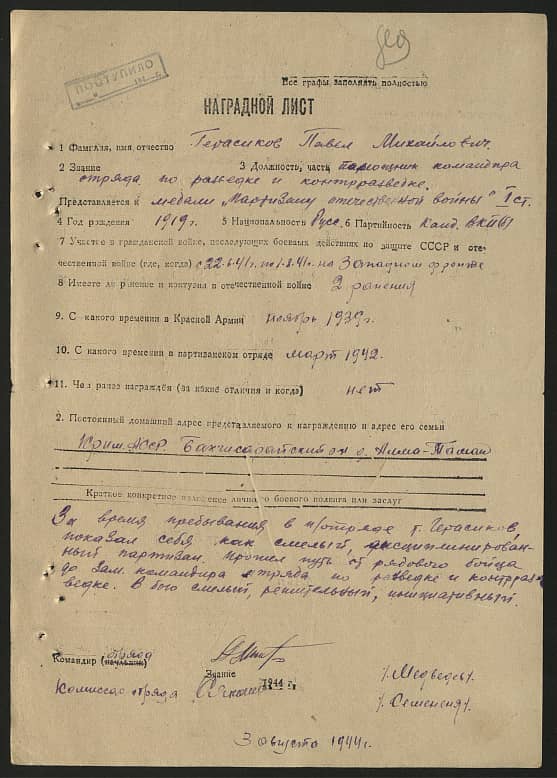 ПОСТУПИЛО
Все графы заполнять полностью
НАГРАДНОЙ ЛИСТ
1 Фамилия, имя, отчество Герасиков Павел Михайлович
2 Звание 3 Должность, часть помощник командира
отряда по разведке и контрразведке.
Представляется к медали "Партизану отечественной войны" I ст.
4 Год рождения 1919г. 5 Национальность Русс. 6 Партийность Канд. ВКП(б)
7 Участие в гражданской войне, последующих боевых действиях по защите СССР и оте-
чественной войне (где, когда) с 22.6.41г. по 1.8.41г. на Западном фронте
8 Имеет ли ранение и контузии в отечественной войне 2 ранения
9. С какого времени в Красной Армии ноябрь 1939г.
10. С какого времени в партизанском отряде март 1942.
11. Чем ранее награждён (за какие отличия и когда) нет
2. Постоянный домашний адрес представляемого к награждению и адрес его семьи
Крим. АССР. Бахчисарайский р-н д. Алма-Тамак
Краткое конкретное изложение личного боевого подвига или заслуг
За время пребывания в п/отряде т. Герасиков,
показал себя как смелый, дисциплинирован-
ный партизан. Прошел путь от рядового бойца
до зам. командира отряда по разведке и контрраз
ведке. В бою смелый, решительный, инициативный.
Командир отряда (начальник)
Звание
1944 г.
/Медведь/.
Комиссар отряда
/Семененя/.
3 августа 1944г.